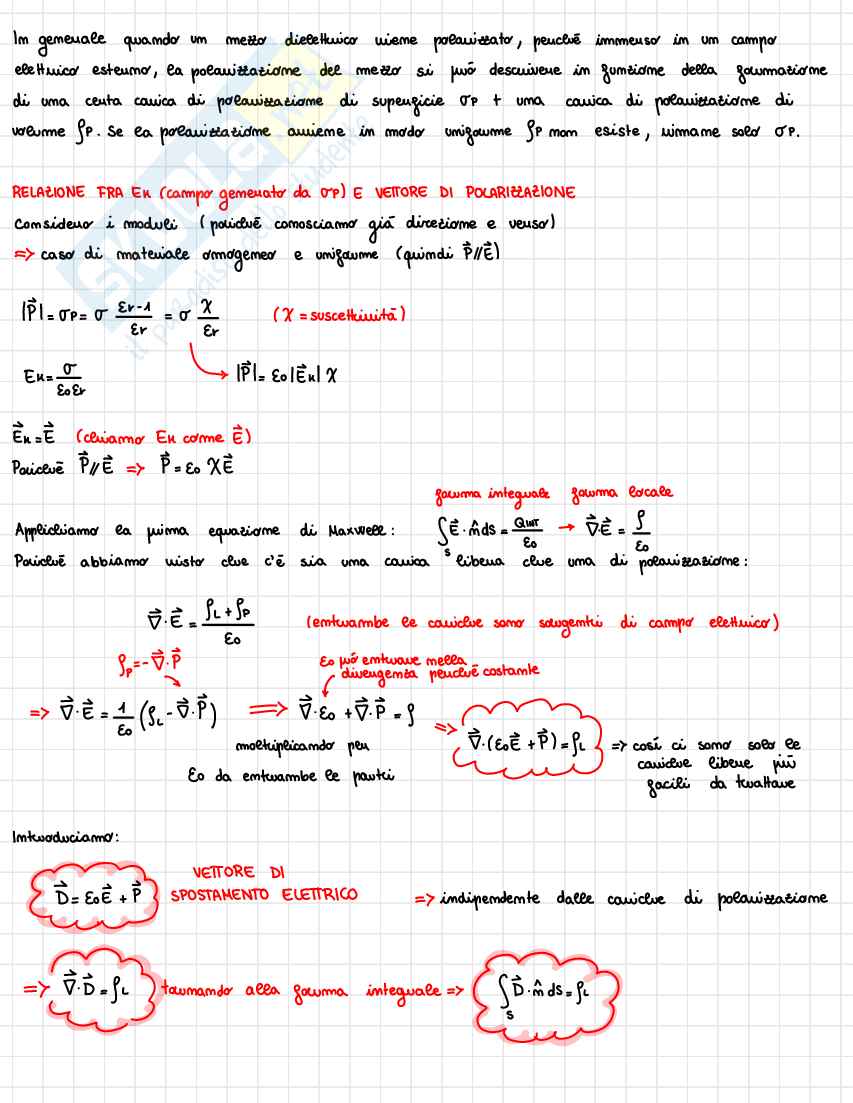 In generale quando un mezzo dielettrico viene polarizzato, perché immerso in un campo
elettrico esterno, la polarizzazione del mezzo si può descrivere in funzione della formazione
di una certa carica di polarizzazione di superficie σP + una carica di polarizzazione di
volume ρP. Se la polarizzazione avviene in modo uniforme ρP non esiste, rimane solo σP.
RELAZIONE FRA EK (campo generato da σP) E VETTORE DI POLARIZZAZIONE
Considero i moduli (poiché conosciamo già direzione e verso)
=> caso di materiale omogeneo e uniforme (quindi P⃗//E⃗)
|P⃗| = σP = σ (εr-1)/εr = σ χ/εr (χ = suscettività)
EK = σ/(ε0εr) → |P⃗| = ε0|E⃗K| χ
E⃗K = E⃗ (chiamo EK come E⃗)
Poiché P⃗//E⃗ => P⃗ = ε0 χE⃗
forma integrale forma locale
Applichiamo la prima equazione di Maxwell: ∫S E⃗·n̂ds = QINT/ε0 → ∇⃗E⃗ = ρ/ε0
Poiché abbiamo visto che c'è sia una carica libera che una di polarizzazione:
∇⃗·E⃗ = (ρL + ρP)/ε0 (entrambe le cariche sono sorgenti di campo elettrico)
ρp = -∇⃗·P⃗ ε0 può entrare nella
divergenza perché costante
=> ∇⃗·E⃗ = 1/ε0 (ρL - ∇⃗·P⃗) => ∇⃗·ε0 + ∇⃗·P⃗ = ρ => ∇⃗·(ε0E⃗ + P⃗) = ρL => così ci sono solo le
moltiplicando per cariche libere più
ε0 da entrambe le parti facili da trattare
Introduciamo:
D⃗ = ε0E⃗ + P⃗ VETTORE DI
SPOSTAMENTO ELETTRICO => indipendente dalle cariche di polarizzazione
=> ∇⃗·D⃗ = ρL tornando alla forma integrale => ∫S D⃗·n̂ ds = ρL
SKUOLA.net
il paradiso dello studente